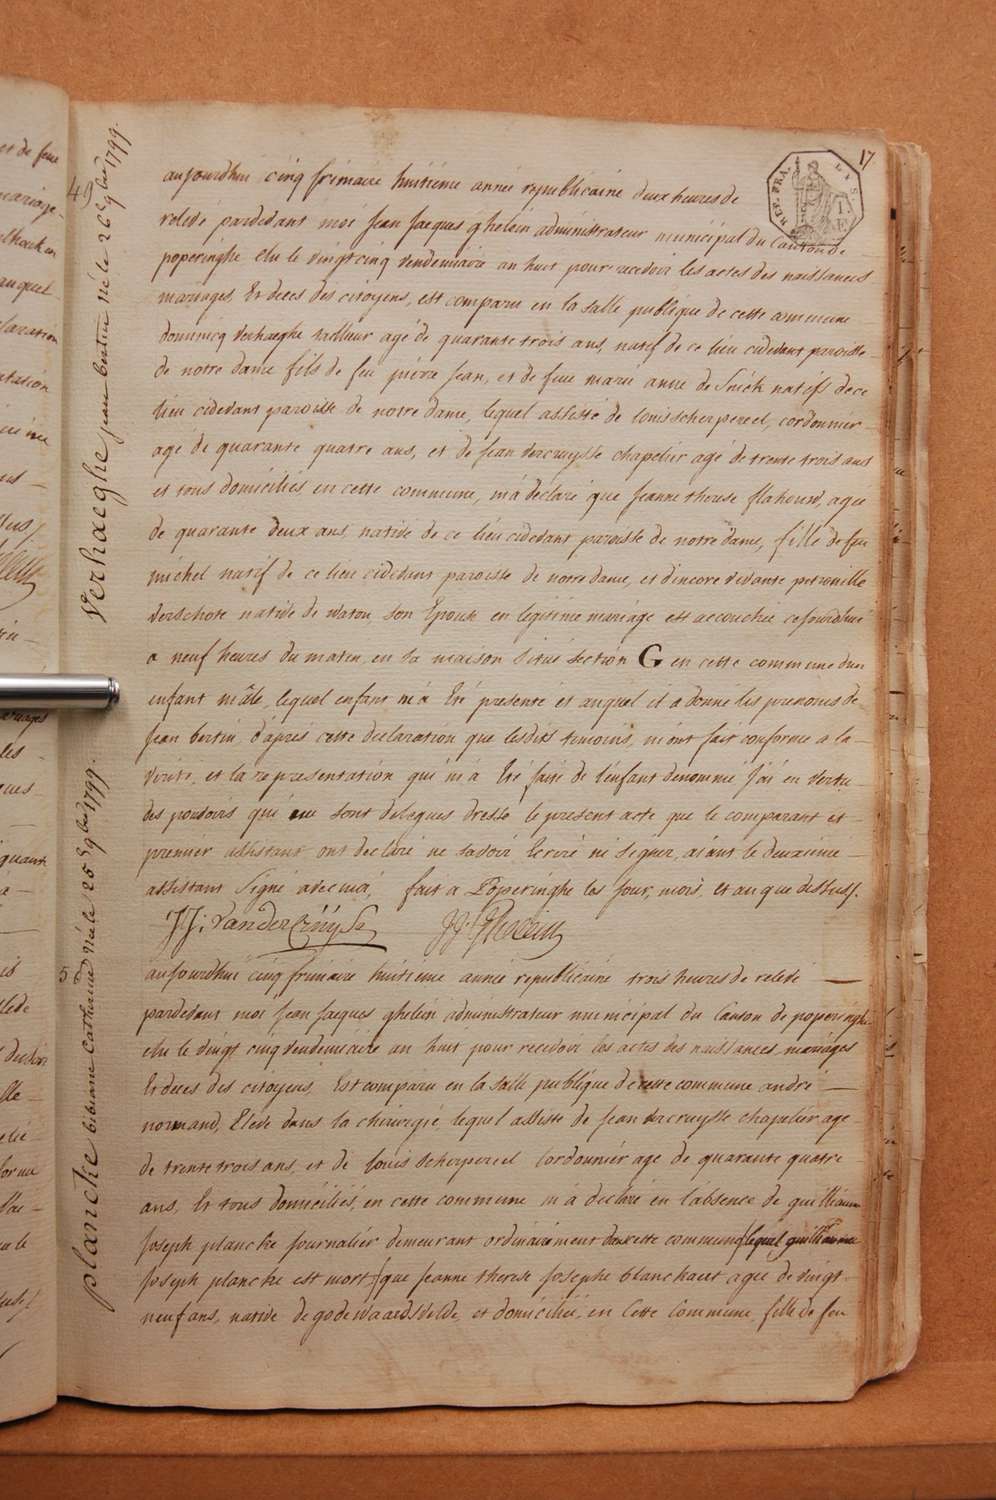 17
REP. FRA.
49
Verhaeghe jean bertin né le 26 9bre 1799.
aujourdhui cinq frimaire huitieme année republicaine deux heures de
relevé pardevant moi Jean Jacques ghelein administrateur municipal du Canton de
poperinghe elu le vingt cinq vendemiaire an huit pour recevoir les actes des naissances
mariages, et deces des citoyens, est comparu en la salle publique de cette commune
dominicq verhaeghe tailleur agé de quarante trois ans, natif de ce lieu cidevant paroisse
de notre dame fils de feu pierre Jean, et de feue marie anne de natifs de ce
lieu cidevant paroisse de notre dame, lequel assisté de louis scherpereel, cordonnier
age de quarante quatre ans, et de Jean vercruysse chapelier agé de trente trois ans
et tous domiciliés en cette commune, m'a déclaré que Jeanne therese flahouw, agée
de quarante deux ans, native de ce lieu cidevant paroisse de notre dame, fille de feu
michel natif de ce lieu cidevant paroisse de notre dame, et d'encore vivante petronille
verschote native de watou, son Epouse en legitime mariage est accouchée cejourdhui
a neuf heures du matin, en sa maison située section G en cette commune d'un
enfant mâle, lequel enfant m'a Eté presenté et auquel il a donné les prenoms de
Jean bertin, d'apres cette declaration que lesdits temoins, m'ont fait conforme a la
verité, et la representation qui m'a Eté faite de l'enfant denommé J'ai en vertu
des pouvoirs qui me sont delegues dressé le present acte que le comparant et
premier assistant ont declaré ne savoir Ecrire ni signer, aiant le deuxieme
assistant signé avec moi, fait a Poperinghe les jour, mois, et an que dessus.
JJ: VanderCruysse JJ. Ghelein
plancke bibiane Catharine née le 25 9bre 1799.
aujourdhui cinq frimaire huitieme année republicaine trois heures de relevé
pardevant moi Jean Jacques ghelein administrateur municipal du Canton de poperinghe
elu le vingt cinq vendemiaire an huit pour recevoir les actes des naissances mariages
Et deces des citoyens, Est comparu en la salle publique de cette commune andré
normand, Eleve dans la chirurgie, lequel assisté de Jean vercruysse chapelier age
de trente trois ans, et de louis scherpereel Cordonnier age de quarante quatre
ans, Et tous domiciliés, en cette commune m'a declaré en l'absence de guilliaume
Joseph plancke Journalier demeurant ordinairement dans cette commune (lequel guilliaume
Joseph plancke est mort) que Jeanne therese Josephe blanckaert agee de vingt
neuf ans, native de godewaersvelde, et domiciliée, en cette Commune, fille de feu